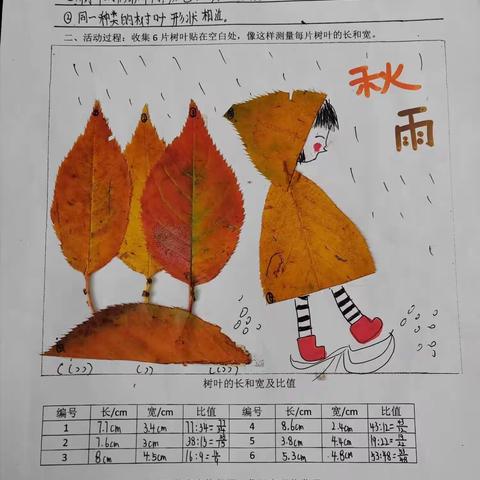 ②同一种类的树叶形状相近。
二、活动过程：收集 6 片树叶贴在空白处，像这样测量每片树叶的长和宽。
秋
雨
树叶的长和宽及比值
编号 长/cm 宽/cm 比值 编号 长/cm 宽/cm 比值
1 7.7cm 3.4cm 77:34=77/34 4 8.6cm 2.4cm 43:12=43/12
2 7.6cm 3cm 38:15=38/15 5 3.8cm 4.4cm 19:22=19/22
3 8cm 4.5cm 16:9=16/9 6 5.3cm 4.8cm 53:48=53/48